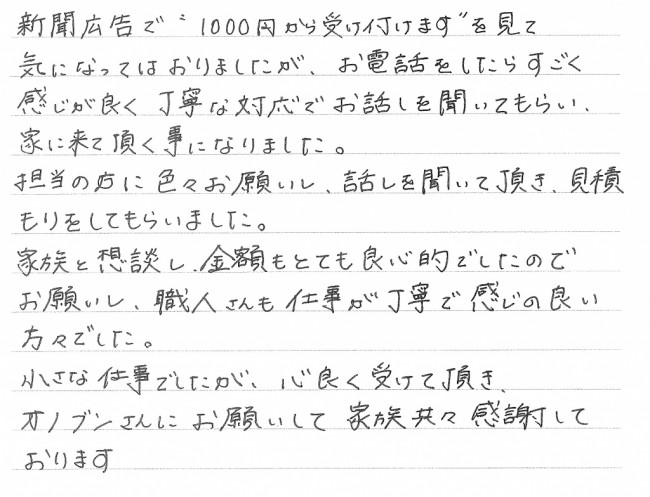 新聞広告で“1000円から受け付けます”を見て
気になってはおりましたが、お電話をしたらすごく
感じが良く丁寧な対応でお話しを聞いてもらい、
家に来て頂く事になりました。
担当の方に色々お願いし、話しを聞いて頂き、見積
もりをしてもらいました。
家族と想談し、金額もとても良心的でしたので
お願いし、職人さんも仕事が丁寧で感じの良い
方々でした。
小さな仕事でしたが、心良く受けて頂き、
オノブンさんにお願いして家族共々感謝して
おります